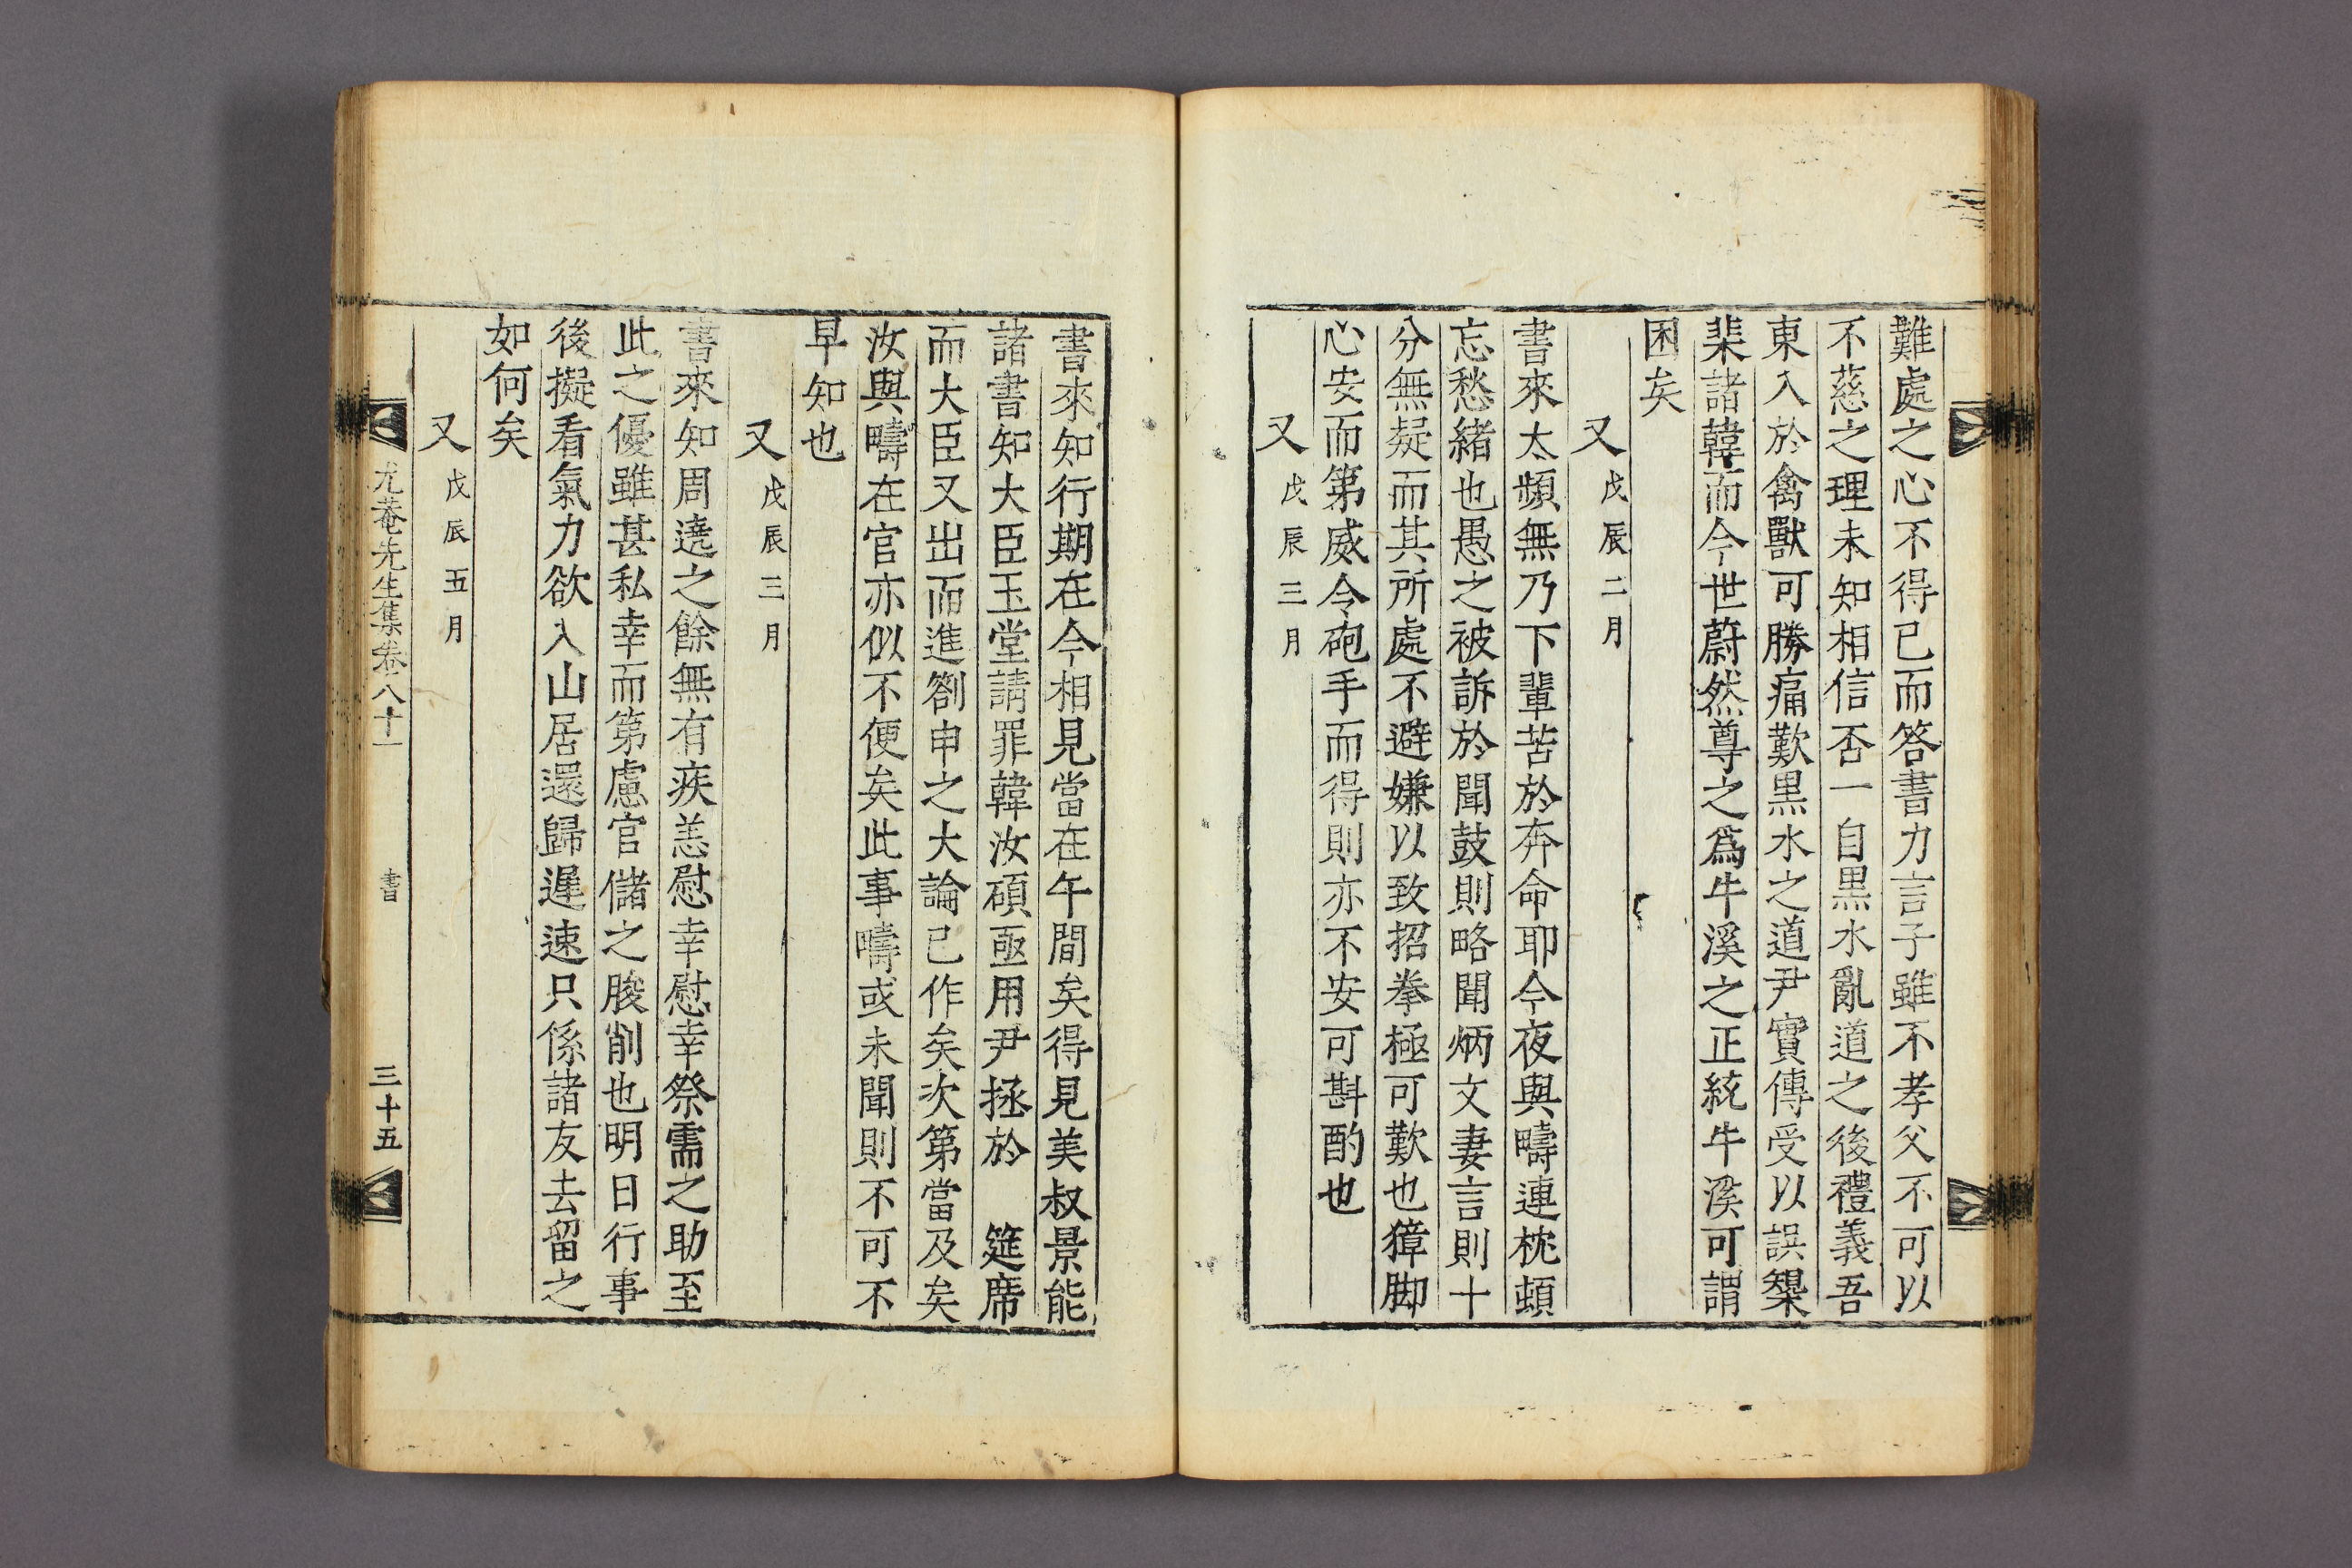 難處之心不得已而答書力言子雖不孝父不可以
不慈之理未知相信否一自黑水亂道之後禮義吾
東入於禽獸可勝痛歎黑水之道尹實傳受以誤槼
棐諸韓而今世蔚然尊之爲牛溪之正統牛溪可謂
困矣
又戊辰二月
書來太頻無乃下輩苦於奔命耶今夜與疇連枕頓
忘愁緒也愚之被訴於聞鼓則略聞炳文妻言則十
分無疑而其所處不避嫌以致招拳極可歎也獐脚
心安而第威令砲手而得則亦不安可斟酌也
又戊辰三月
書來知行期在今相見當在午間矣得見美叔景能
諸書知大臣玉堂請罪韓汝碩亟用尹拯於 筵席
而大臣又出而進劄申之大論已作矣次第當及矣
汝與疇在官亦似不便矣此事疇或未聞則不可不
早知也
又戊辰三月
書來知周遶之餘無有疾恙慰幸慰幸祭需之助至
此之優雖甚私幸而第慮官儲之朘削也明日行事
後擬看氣力欲入山居還歸遲速只係諸友去留之
如何矣
又戊辰五月
尤菴先生集卷八十一 書 三十五